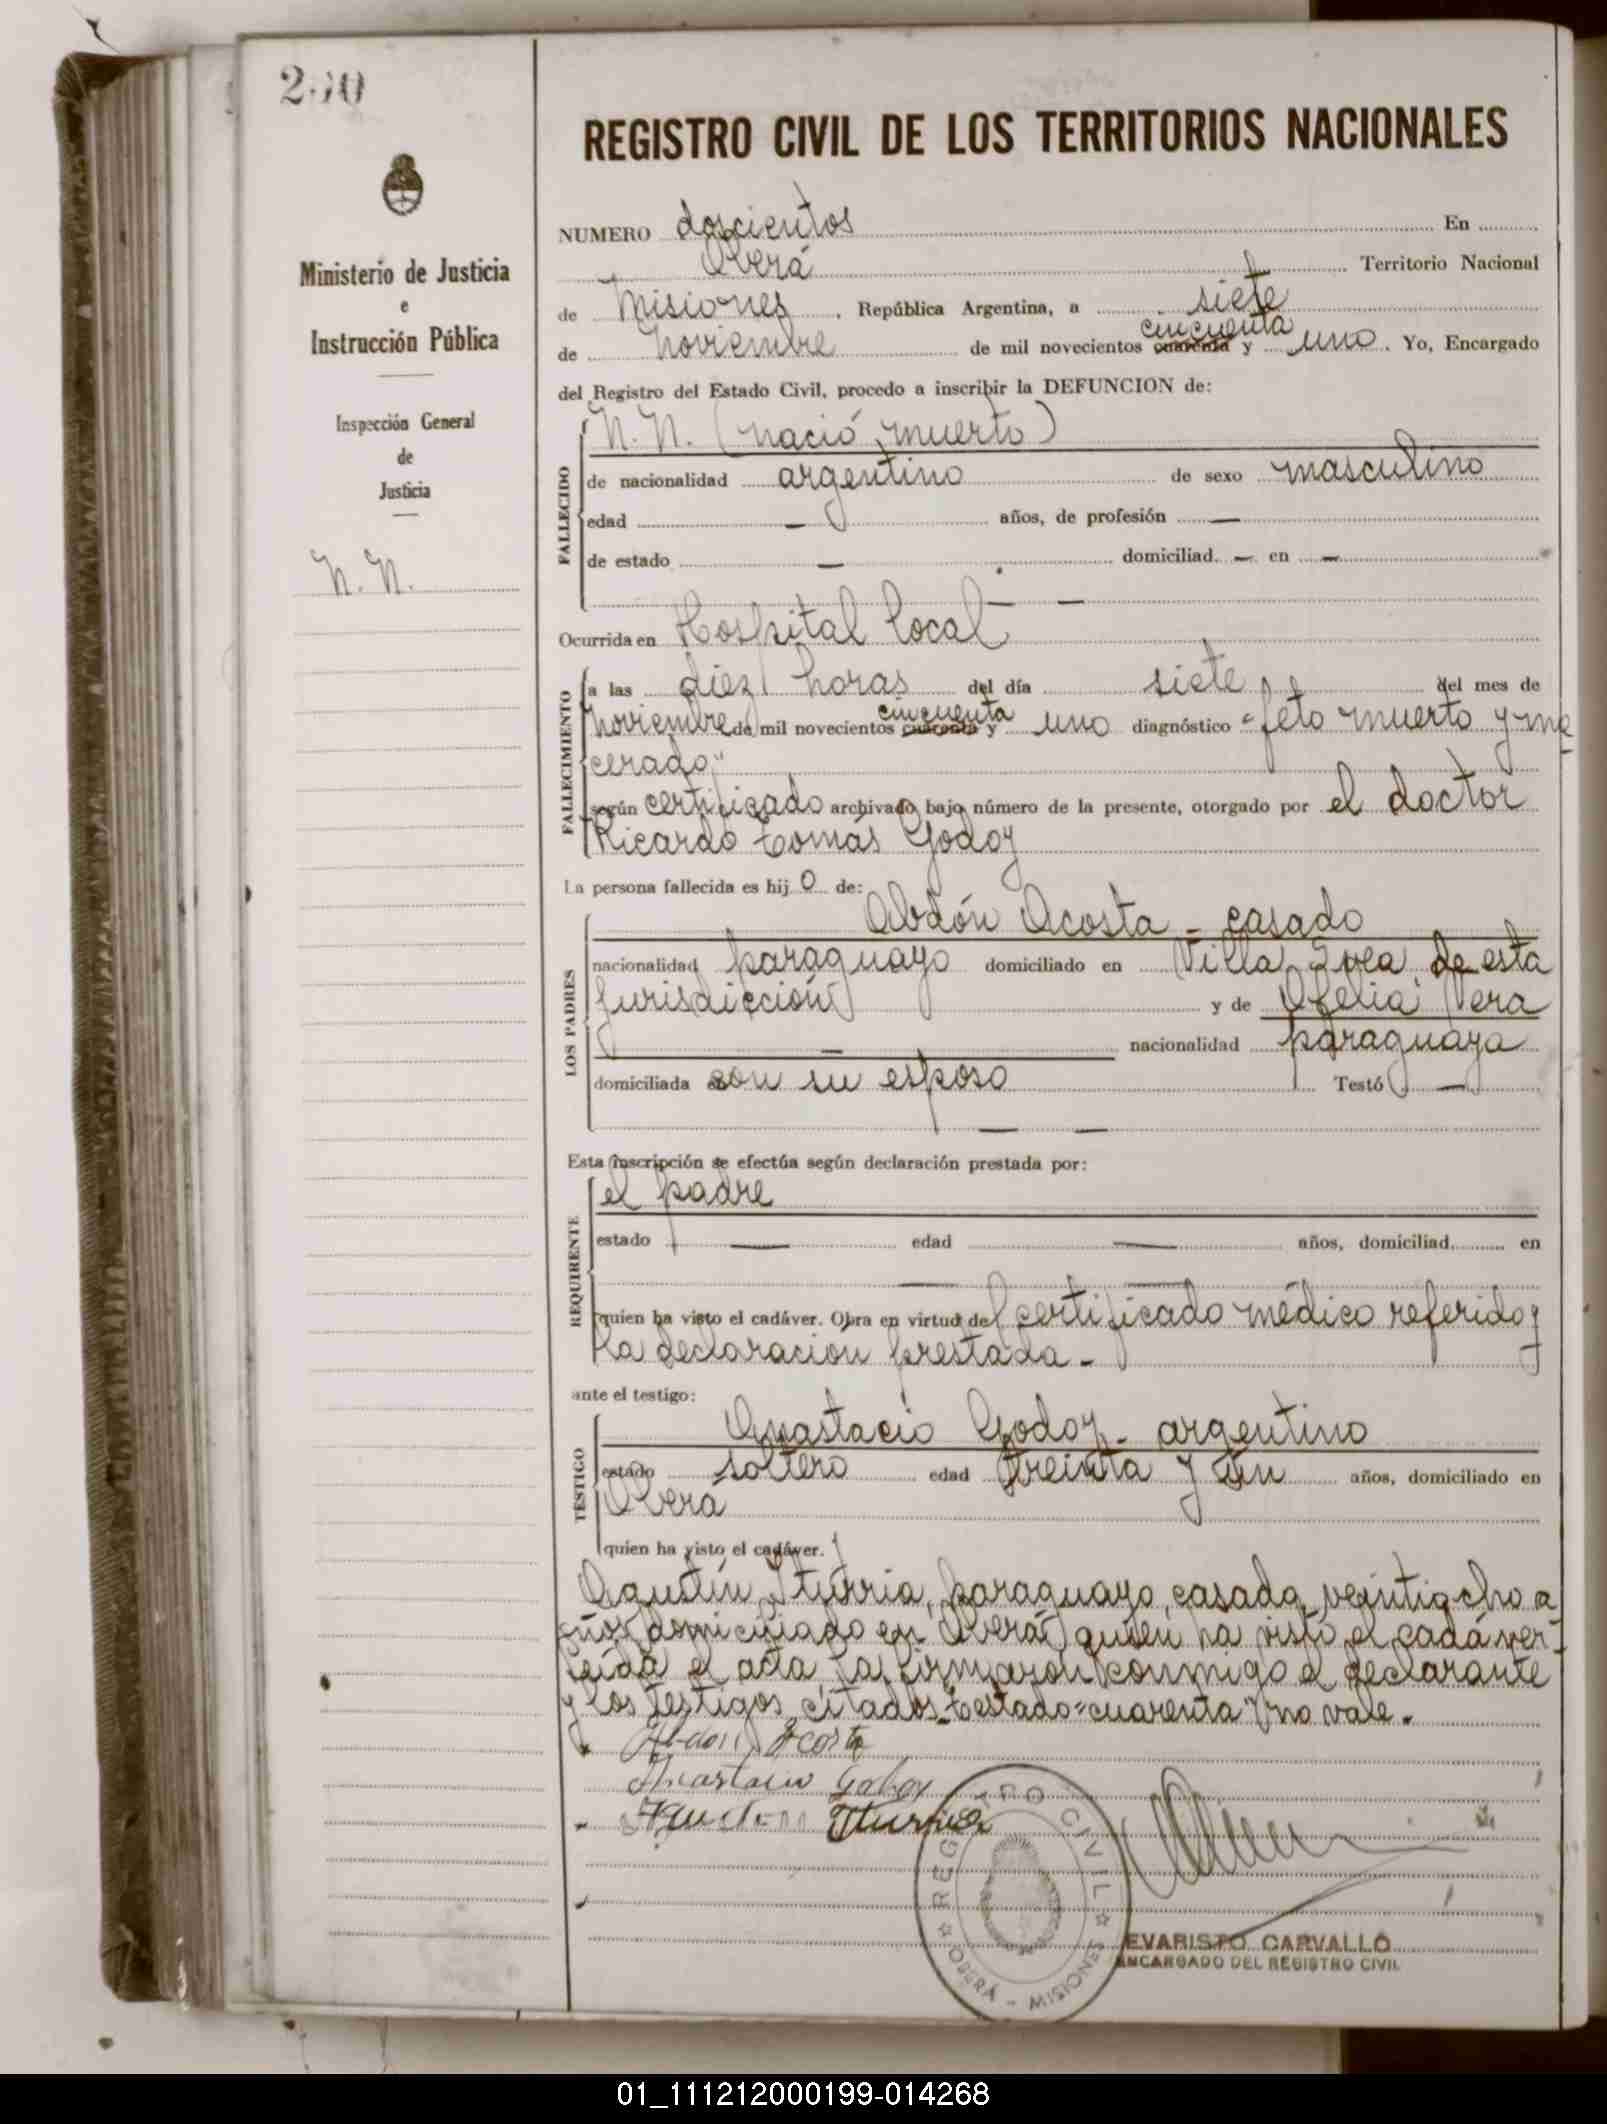 200
REGISTRO CIVIL DE LOS TERRITORIOS NACIONALES
Ministerio de Justicia
e
Instrucción Pública
Inspección General
de
Justicia
N. N.
NUMERO doscientos En
Oberá Territorio Nacional
de Misiones, República Argentina, a siete
de Noviembre de mil novecientos cuarenta cincuenta y uno. Yo, Encargado
del Registro del Estado Civil, procedo a inscribir la DEFUNCION de:
FALLECIDO
N. N. (nació muerto)
de nacionalidad argentino de sexo masculino
edad — años, de profesión —
de estado — domiciliad. — en —
— —
Ocurrida en Hospital local
FALLECIMIENTO
a las diez horas del día siete del mes de
Noviembre de mil novecientos cuarenta cincuenta y uno diagnóstico "feto muerto y ma-
cerado"
según certificado archivado bajo número de la presente, otorgado por el doctor
Ricardo Tomás Godoy
La persona fallecida es hijo de:
LOS PADRES
Abdón Acosta - casado
nacionalidad paraguayo domiciliado en Villa Svea de esta
jurisdicción y de Ofelia Vera
— nacionalidad paraguaya
domiciliada con su esposo Testó —
— —
Esta inscripción se efectúa según declaración prestada por:
REQUIRENTE
el padre
estado — edad — años, domiciliad. en
— —
quien ha visto el cadáver. Obra en virtud del certificado médico referido y
la declaración prestada.-
ante el testigo:
TESTIGO
Anastacio Godoy - argentino
estado soltero edad treinta y un años, domiciliado en
Oberá
quien ha visto el cadáver. y
Agustín Iturria, paraguayo, casado, veintiocho a-
ños, domiciliado en Oberá, quien ha visto el cadáver-
Leída el acta, la firmaron conmigo el declarante
y los testigos citados.- Testado "cuarenta" no vale.
Abdon Acosta
Anastacio Godoy
Agustin Iturria
REGISTRO CIVIL
OBERÁ - MISIONES
EVARISTO CARVALLO
ENCARGADO DEL REGISTRO CIVIL
01_111212000199-014268